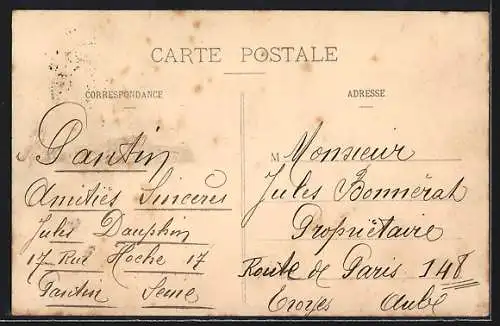 CARTE POSTALE
CORRESPONDANCE
Pantin
Amitiés Sincères
Jules Dauphin
17 Rue Hoche 17
Pantin Seine
ADRESSE
M Monsieur
Jules Bonnérat
Propriétaire
Route de Paris 148
Troyes Aube